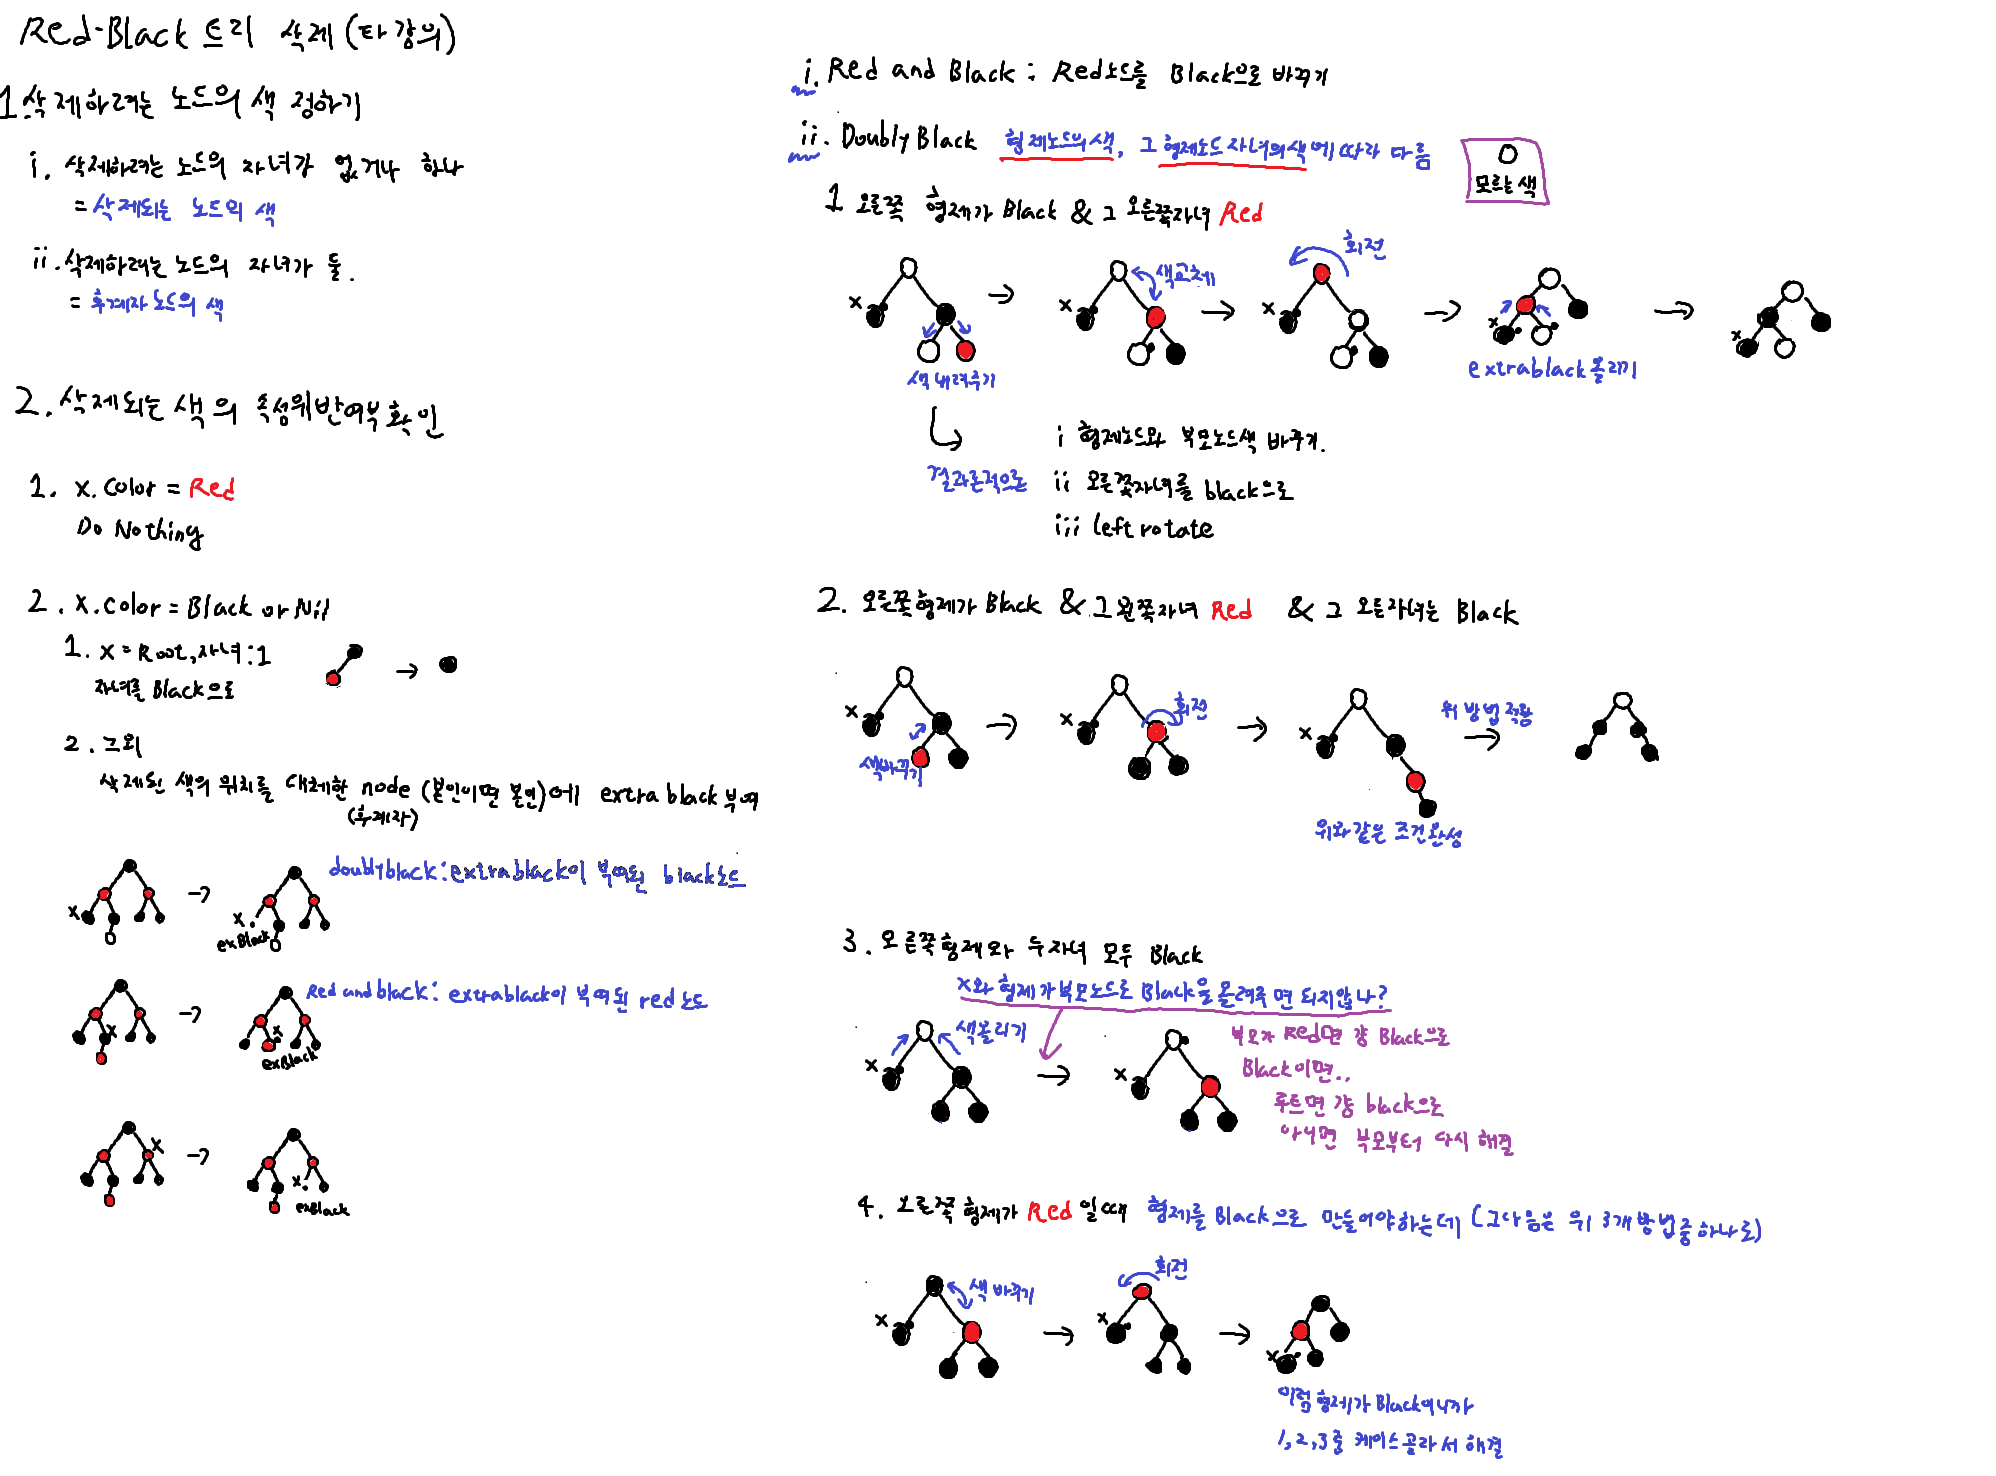 Red-Black 트리 삭제 (타 강의)
1. 삭제하려는 노드의 색 정하기
i. 삭제하려는 노드의 자녀가 없거나 하나
= 삭제되는 노드의 색
ii. 삭제하려는 노드의 자녀가 둘.
= 후계자 노드의 색
2. 삭제되는 색의 속성위반여부 확인
1. x.color = Red
Do Nothing
2. x.color = Black or Nil
1. x = Root, 자녀:1
자녀를 Black으로
2. 그외
삭제된 색의 위치를 대체한 node (본인이면 본인)에 extra black 부여
(후계자)
doublyblack: extrablack이 부여된 black노드
x
x
exBlack
Red and black: extrablack이 부여된 red 노드
x
x
exBlack
x
x
exBlack
i. Red and Black : Red노드를 Black으로 바꾸기
ii. Doubly Black 형제노드의색, 그 형제노드자녀의색에 따라 다름
모르는 색
1 오른쪽 형제가 Black & 그 오른쪽자녀 Red
회전
색교체
x
x
x
x
x
색 내려주기
extrablack올리기
결과론적으론
i 형제노드와 부모노드색 바꾸기.
ii 오른쪽자녀를 black으로
iii left rotate
2. 오른쪽형제가 Black & 그 왼쪽자녀 Red & 그 오른자녀는 Black
회전
위 방법 적용
x
x
x
색바꾸기
위와같은 조건완성
3. 오른쪽형제와 두자녀 모두 Black
x와 형제가 부모노드로 Black을 올려주면 되지않나?
색올리기
x
x
부모가 Red면 걍 Black으로
Black이면..
루트면 걍 black으로
아니면 부모부터 다시 해결
4. 오른쪽 형제가 Red 일때 형제를 Black으로 만들어야하는데 (그다음은 위 3개 방법중 하나로)
회전
색 바꾸기
x
x
x
이럼 형제가 Black이니까
1,2,3중 케이스골라서 해결